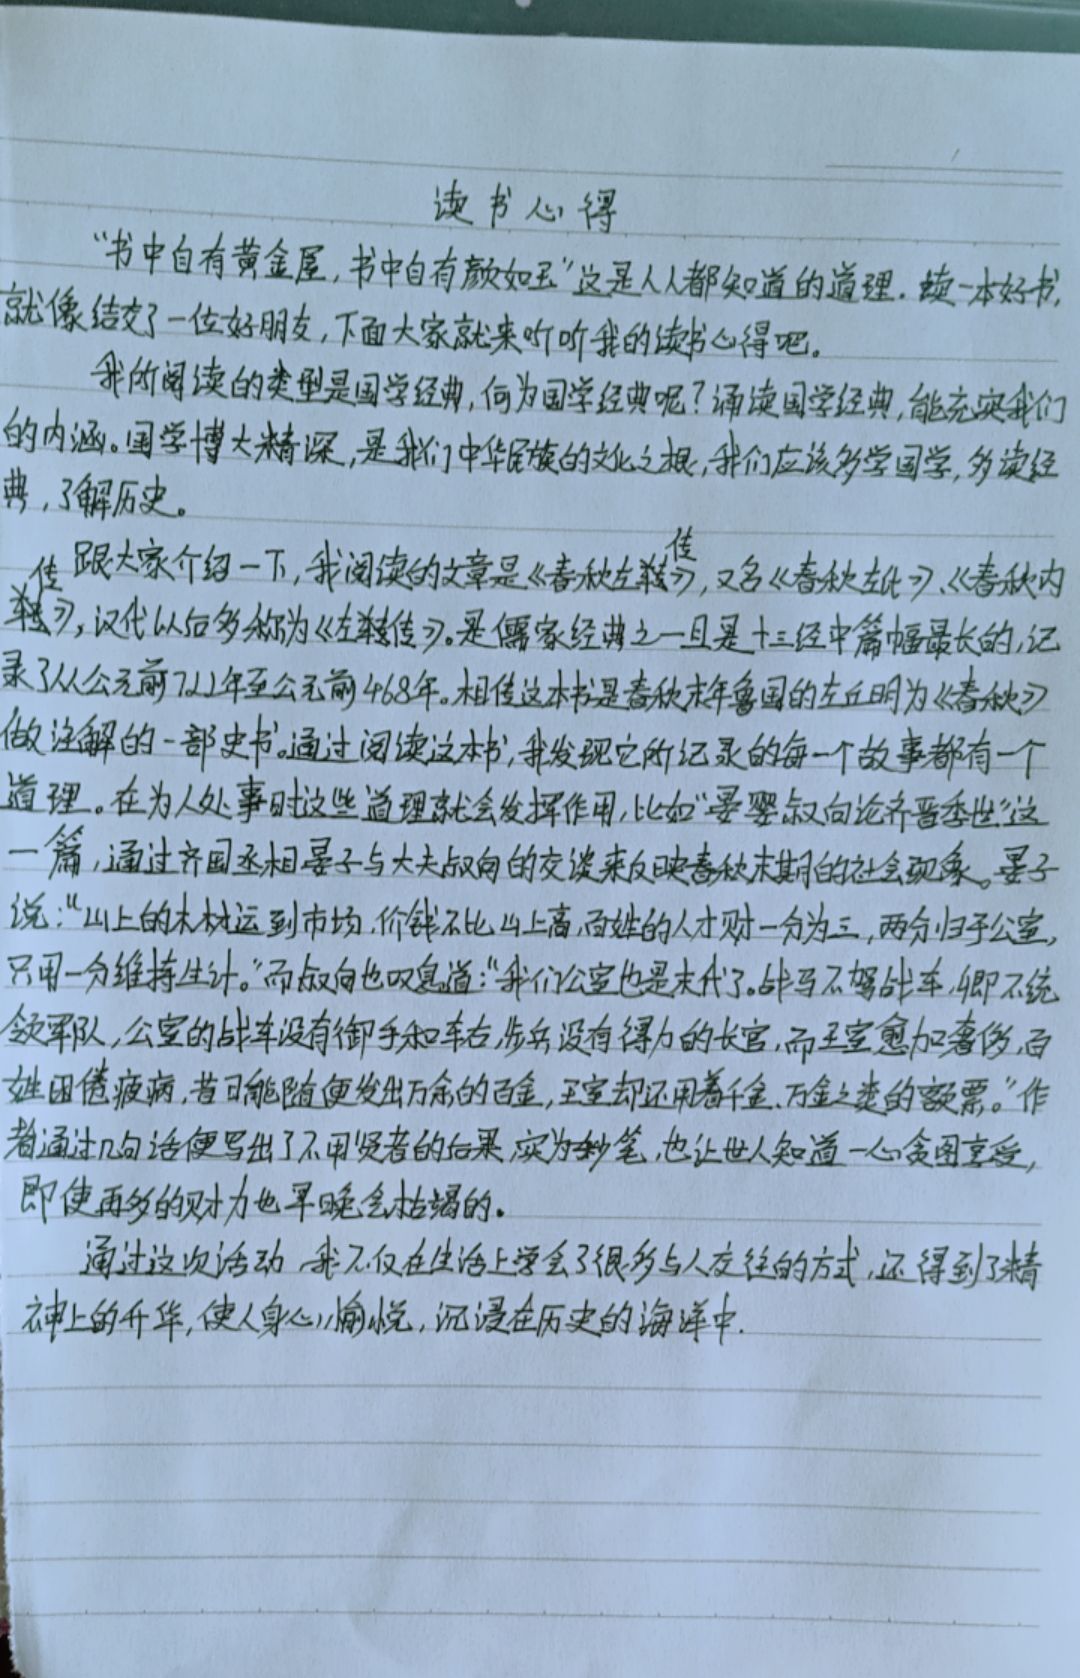 读书心得
“书中自有黄金屋,书中自有颜如玉”这是人人都知道的道理.读一本好书,
就像结交了一位好朋友,下面大家就来听听我的读书心得吧。
我所阅读的类型是国学经典,何为国学经典呢?诵读国学经典,能充实我们
的内涵。国学博大精深,是我们中华民族的文化之根,我们应该多学国学,多读经
典,了解历史。
跟大家介绍一下,我阅读的文章是《春秋左传》,又名《春秋左氏》、《春秋内
传》,汉代以后多称为《左传》。是儒家经典之一且是十三经中篇幅最长的,记
录了从公元前722年至公元前468年。相传这本书是春秋末年鲁国的左丘明为《春秋》
做注解的一部史书。通过阅读这本书,我发现它所记录的每一个故事都有一个
道理。在为人处事时这些道理就会发挥作用,比如“晏婴叔向论齐晋季世”这
一篇,通过齐国丞相晏子与大夫叔向的交谈来反映春秋末期的社会现象。晏子
说:“山上的木材运到市场,价钱不比山上高,百姓的人才财一分为三,两分归于公室,
只用一分维持生计。”而叔向也叹息道:“我们公室也是末代了。战马不驾战车,卿不统
领军队,公室的战车没有御手和车右,步兵没有得力的长官,而王室愈加奢侈,百
姓困倦疲病,昔日能随便发出万余的百金,王室却还用着千金、万金之类的额票。”作
者通过几句话便写出了不用贤者的后果,实为妙笔,也让世人知道一心贪图享受,
即使再多的财力也早晚会枯竭的。
通过这次活动,我不仅在生活上学会了很多与人交往的方式,还得到了精
神上的升华,使人身心愉悦,沉浸在历史的海洋中.